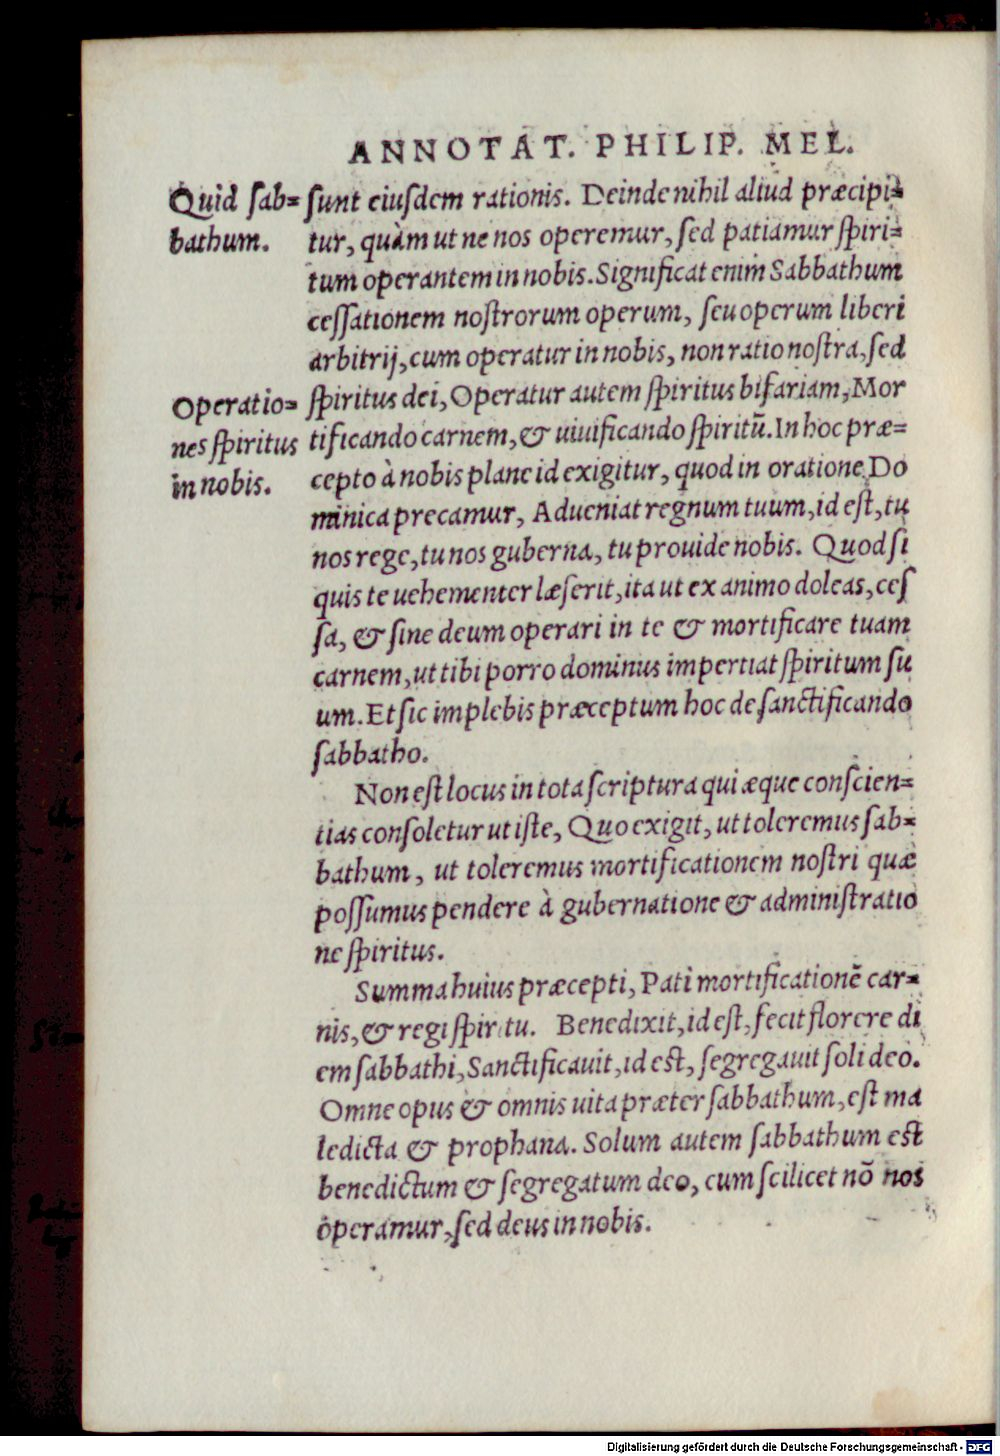 ANNOTAT. PHILIP. MEL.
Quid ſab=
bathum.
ſunt eiuſdem rationis. Deinde nihil aliud præcipi=
tur, quàm ut ne nos operemur, ſed patiamur ſpiri=
tum operantem in nobis. Significat enim Sabbathum
ceſſationem noſtrorum operum, ſeu operum liberi
arbitrij, cum operatur in nobis, non ratio noſtra, ſed
Operatio=
nes ſpiritus
in nobis.
ſpiritus dei, Operatur autem ſpiritus bifariam, Mor
tificando carnem, & uiuificando ſpiritū. In hoc præ=
cepto à nobis plane id exigitur, quod in oratione Do
minica precamur, Adueniat regnum tuum, id eſt, tu
nos rege, tu nos guberna, tu prouide nobis. Quod ſi
quis te uehementer læſerit, ita ut ex animo doleas, ceſ
ſa, & ſine deum operari in te & mortificare tuam
carnem, ut tibi porro dominus impertiat ſpiritum ſu
um. Et ſic implebis præceptum hoc de ſanctificando
ſabbatho.
Non eſt locus in tota ſcriptura qui æque conſcien=
tias conſoletur ut iſte, Quo exigit, ut toleremus ſab=
bathum, ut toleremus mortificationem noſtri quæ
poſſumus pendere à gubernatione & adminiſtratio
ne ſpiritus.
Summa huius præcepti, Pati mortificationē car=
nis, & regi ſpiritu. Benedixit, id eſt, fecit florere di
em ſabbathi, Sanctificauit, id eſt, ſegregauit ſoli deo.
Omne opus & omnis uita præter ſabbathum, eſt ma
ledicta & prophana. Solum autem ſabbathum eſt
benedictum & ſegregatum deo, cum ſcilicet nō nos
operamur, ſed deus in nobis.
Digitalisierung gefördert durch die Deutsche Forschungsgemeinschaft - DFG